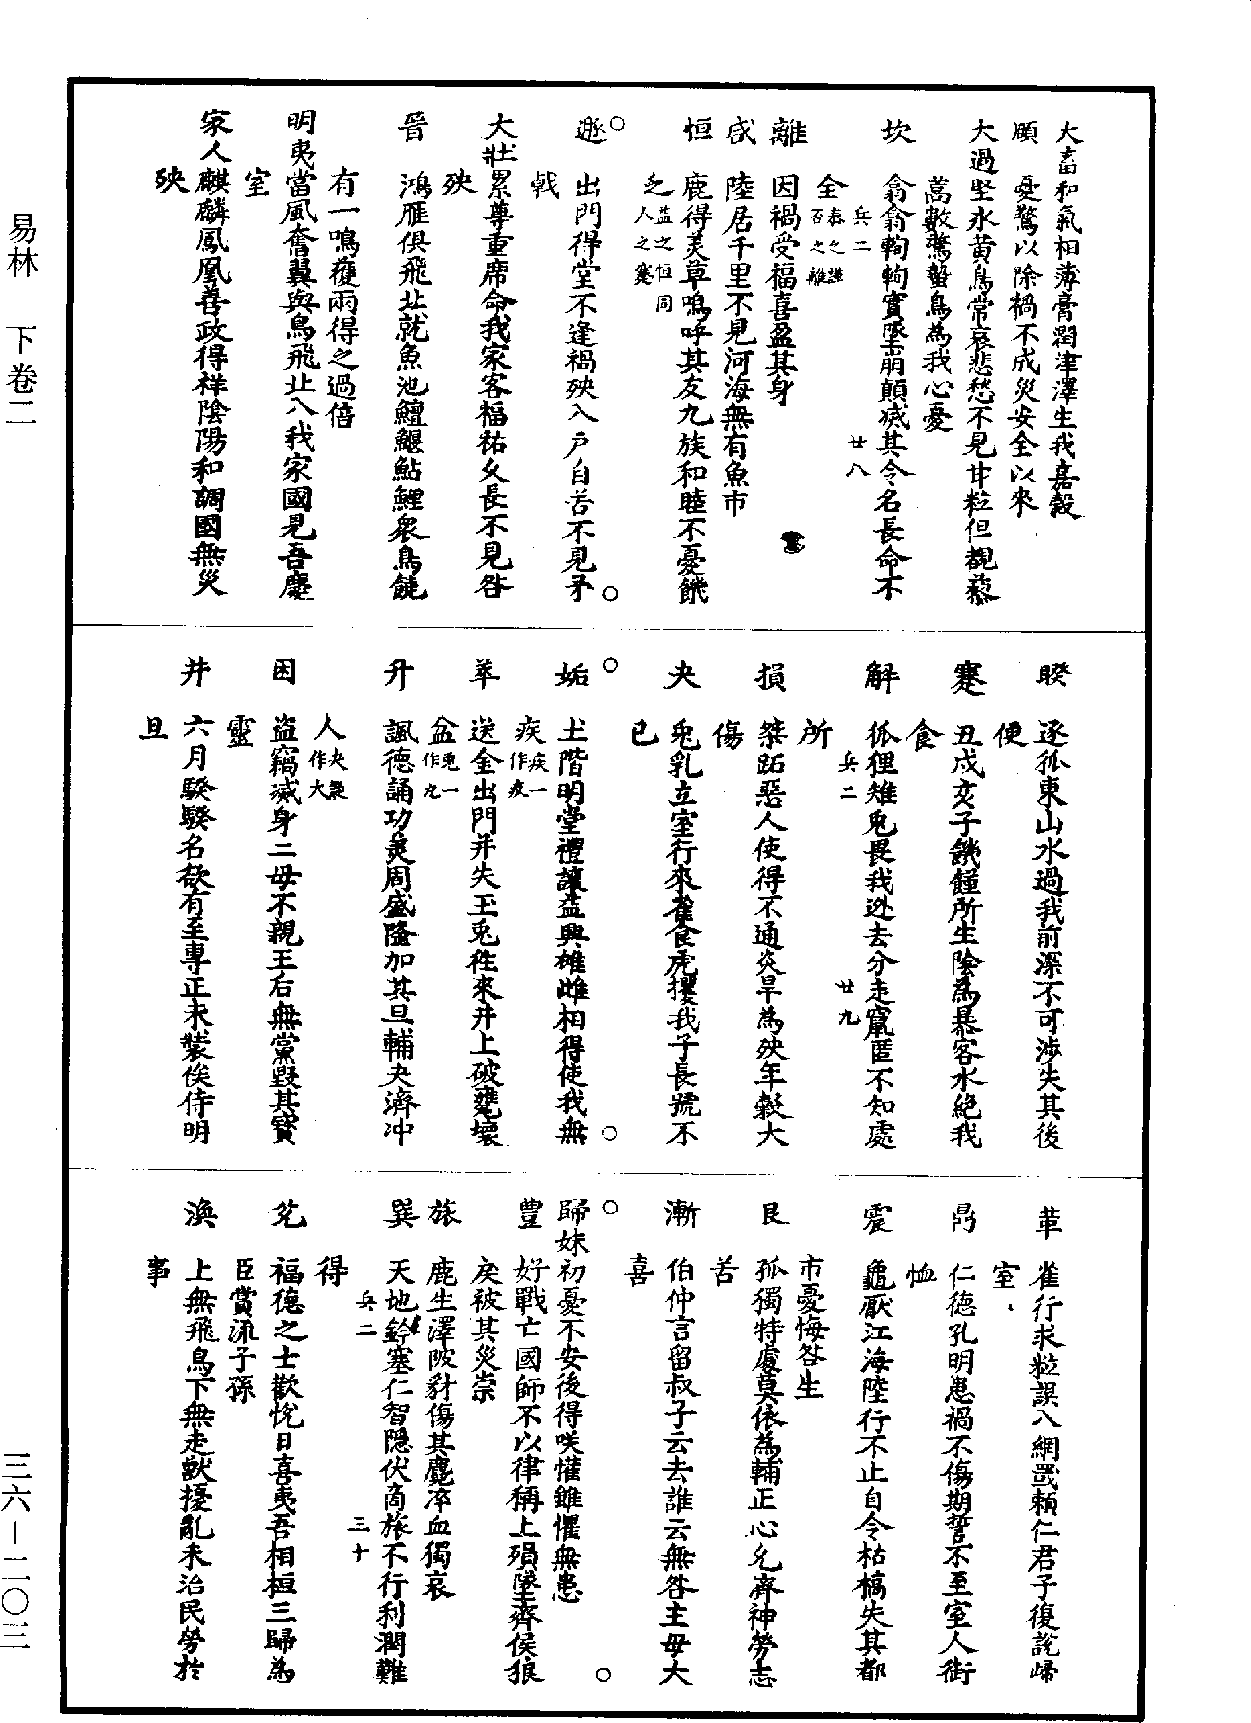 大畜和氣相薄膏潤津澤生我嘉穀
頤　憂驚以除禍不成災安全以來
大過坚氷黃鳥常哀悲愁不見甘粒但觀藜
蒿數驚鷙鳥為我心憂
坎　翕翕輷輷實墜崩顛滅其令名長命不
兵二　廿八
全泰之謙否之離
離　因禍受福喜盈其身
咸　陸居千里不見河海無有魚市
恒　鹿得美草鳴呼其友九族和睦不憂饑
乏益之恒同人之蹇
○
遯　出門得堂不逢禍殃入戶自苦不見矛
戟
大壯累尊重席命我家客福祐久長不見咎
殃
晉　鴻雁俱飛北就魚池鱣鰋鮎鯉衆鳥饒
有一鳴獲兩得之過倍
明夷當風奮翼與鳥飛北入我家國見吾慶
室
家人麒麟鳳凰善政得祥陰陽和調國無災
殃
睽　逐狐東山水過我前深不可涉失其後
便
蹇　丑戌亥子饑饉所生陰為暴客水絕我
食
解　狐狸雉兎畏我逃去分走竄匿不知處
兵二　廿九
所
損　桀跖惡人使得不通炎旱為殃年穀大
傷
夬　兎乳立室行來雀食虎攫我子長號不
已
○
姤　土階明堂禮讓益興雄雌相得使我無
疾疾一作疚
萃　送金出門并失玉兎往來井上破甕壞
盆兎一作九
升　諷德誦功美周盛隆加其旦輔夬濟冲
人夬疑作大
困　盜竊滅身二母不親王后無黨毀其寶
靈
井　六月騤騤名欲有至專正未裝俟侍明
旦
革　雀行求粒誤入網罭賴仁君子復說歸
室
鼎　仁德孔明患禍不傷期誓不至室人銜
恤
震　龜厭江海陸行不止自令枯槁失其都
市憂悔咎生
艮　孤獨特處莫依為輔正心允齊神勞志
苦
漸　伯仲言留叔子云去誰云無咎主母大
喜
○
歸妹初憂不安後得咲懽雖懼無患
豐　好戰亡國師不以律稱上殞墜齊侯狼
戾被其災祟
旅　鹿生澤陂豺傷其麑淬血獨哀
巽　天地鈐塞仁智隱伏商旅不行利潤難
兵二　三十
得
兌　福德之士歡悅日喜夷吾相桓三歸為
臣賞流子孫
渙　上無飛鳥下無走獸擾亂未治民勞於
事
易林　下卷二
三六－二〇三